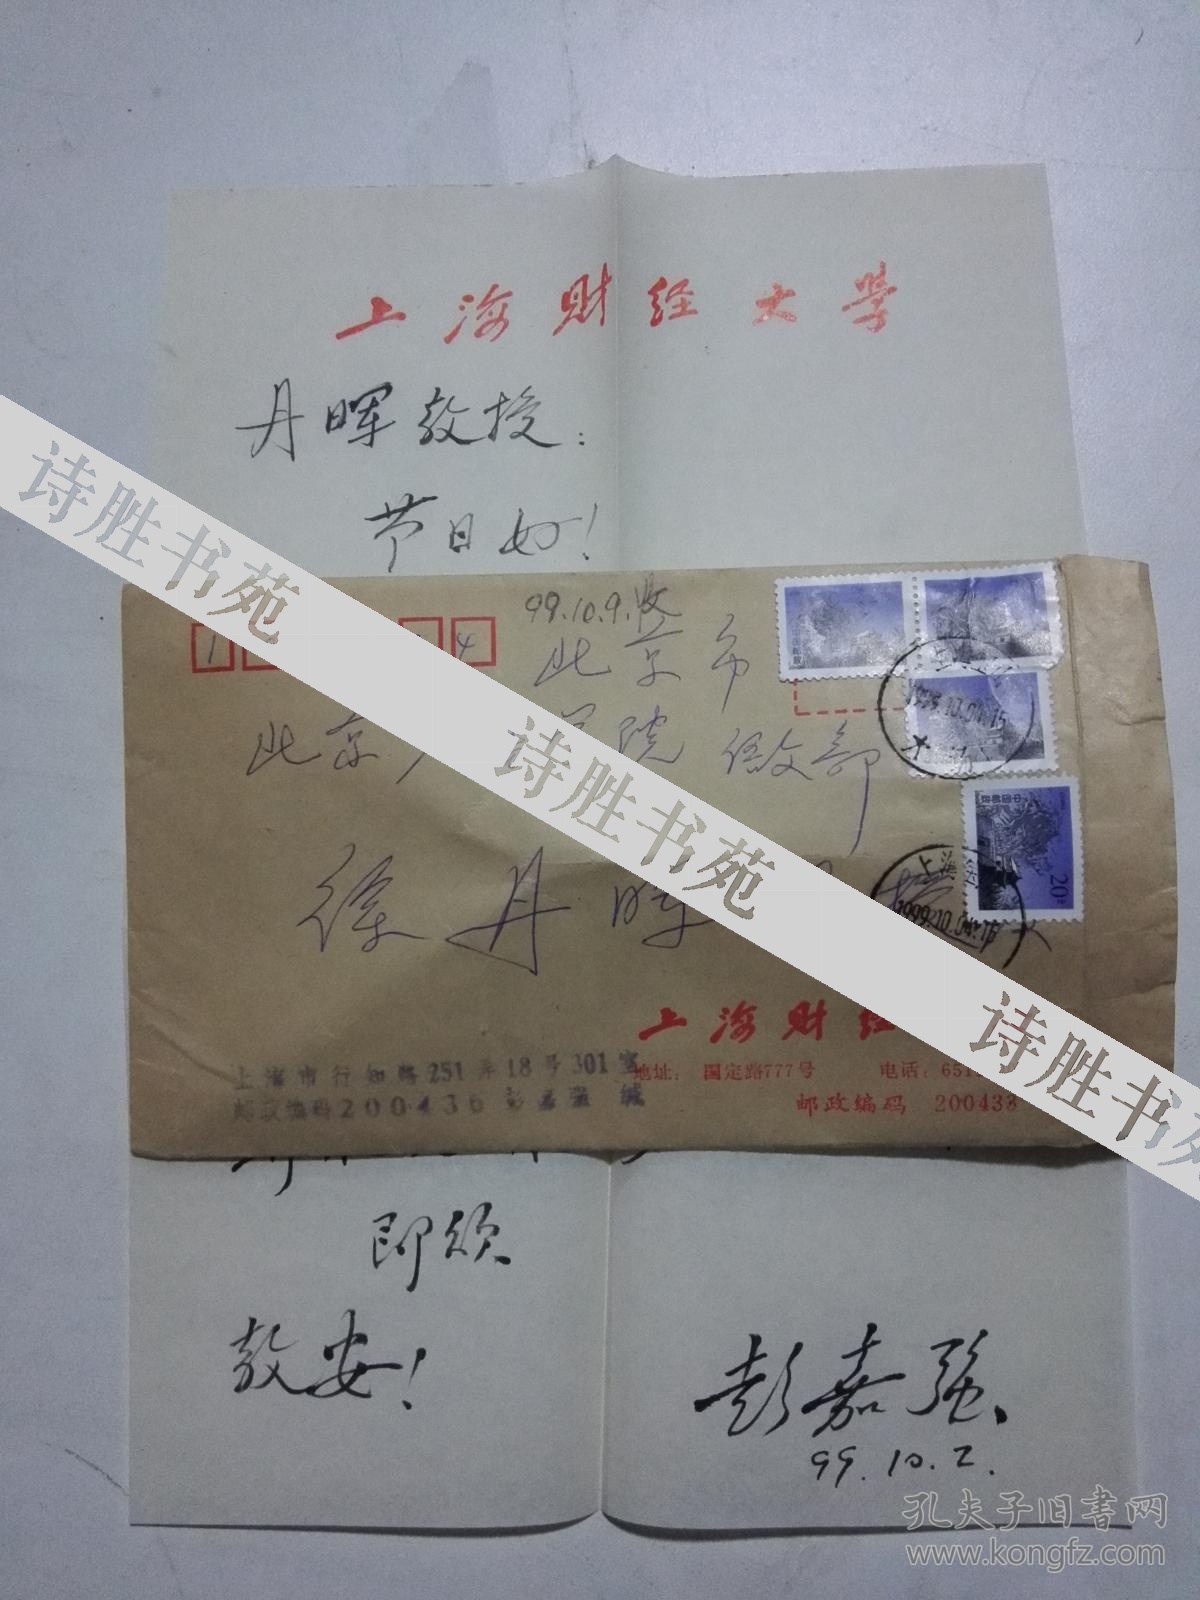 上海财经大学
丹晖教授：
节日好！
99.10.9.收
1 4
北京市
北京 学院 语文部
徐丹晖
20分
1999.10.04.16
上海财经
地址： 国定路777号 电话：651
邮政编码 200433
上海市行知路251弄18号301室
邮政编码200436 彭嘉强 缄
即颂
教安！
彭嘉强
99.10.2.
诗胜书苑
诗胜书苑
诗胜书苑
孔夫子旧書网
www.kongfz.com